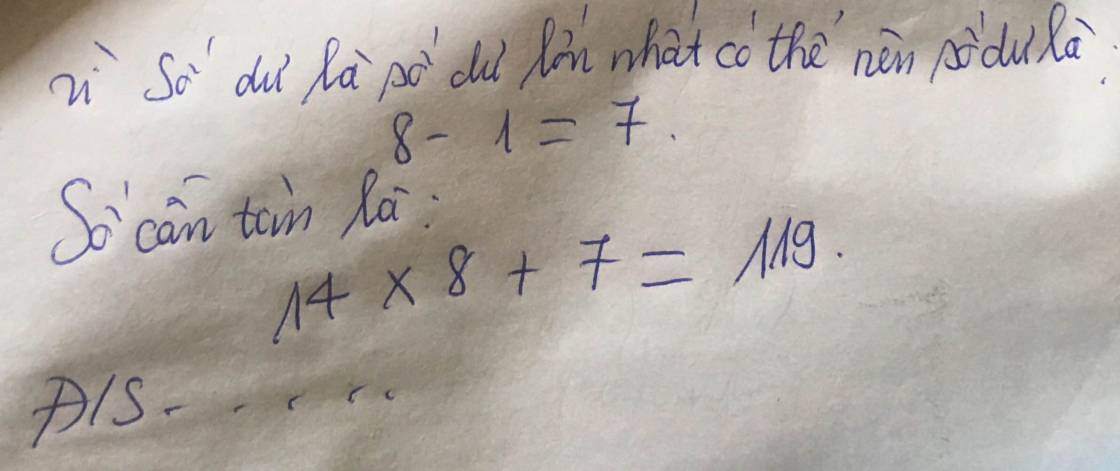 Vì số dư là số dư lớn nhất có thể nên số dư là:
8 - 1 = 7.
Số cần tìm là:
14 x 8 + 7 = 119.
Đ/S.....